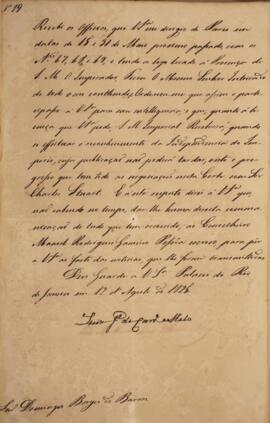 Nº 19
Recebi os Officios, que VSª me dirigio de Paris em
datas de 18 e 31 de Maio proximo passado com os
Nºs 67, 68, e 69, e tendo a logo levado á Presença de
S. M. O Imperador, Ficou O Mesmo Senhor Inteirado
de todo o seu conthêudo, Ordena-me que assim o parti-
cipe a VSª para sua intelligencia; e que, quanto á li-
cença que VSª pede, S. M. Imperial Resolverá, quando
se effeituar o reconhecimento da Independencia do Im-
perio, cuja publicação não poderá tardar, visto o progres-
so que tem tido as negociações nesta Corte com Sir
Charles Stuart. E a este respeito direi a VSª que,
não cabendo no tempo, dar-lhe huma directa commu-
nicação de tudo que tem occorrido, ao Conselheiro
Manoel Rodrigues Gameiro Pessôa escrevo, para pôr
a VSª ao facto das noticias, que lhe foram transmittidas.
Deos Guarde a VSª Palacio do Rio
de Janeiro em 12 de Agosto de 1825
Luiz Jº de Carvº e Mello
Snr Domingos Borges de Barros